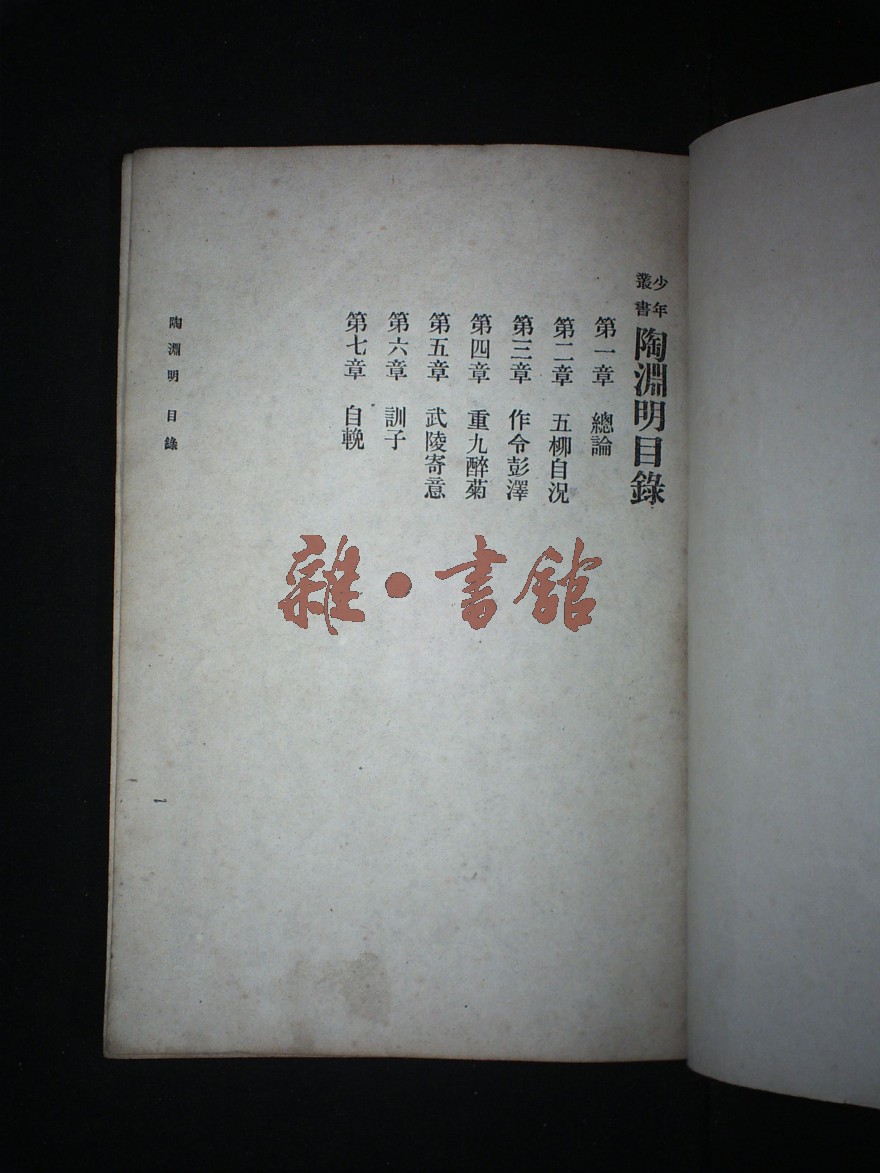 少年叢書 陶淵明目錄
第一章 總論
第二章 五柳自況
第三章 作令彭澤
第四章 重九醉菊
第五章 武陵寄意
第六章 訓子
第七章 自輓
陶淵明 目錄
一
雜·書館